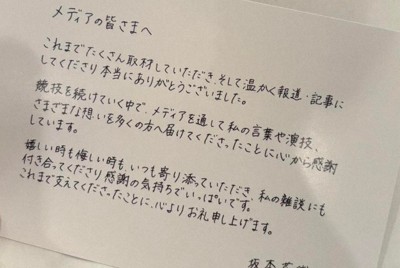 メディアの皆さまへ
これまでたくさん取材していただき、そして温かく報道・記事に
してくださり本当にありがとうございました。
競技を続けていく中で、メディアを通して私の言葉や演技、
さまざまな想いを多くの方へ届けてくださったことに心から感謝
しています。
嬉しい時も悔しい時も、いつも寄り添っていただき、私の雑談にも
付き合ってくださり感謝の気持ちでいっぱいです。
これまで支えてくださったことに、心よりお礼申し上げます。
坂本